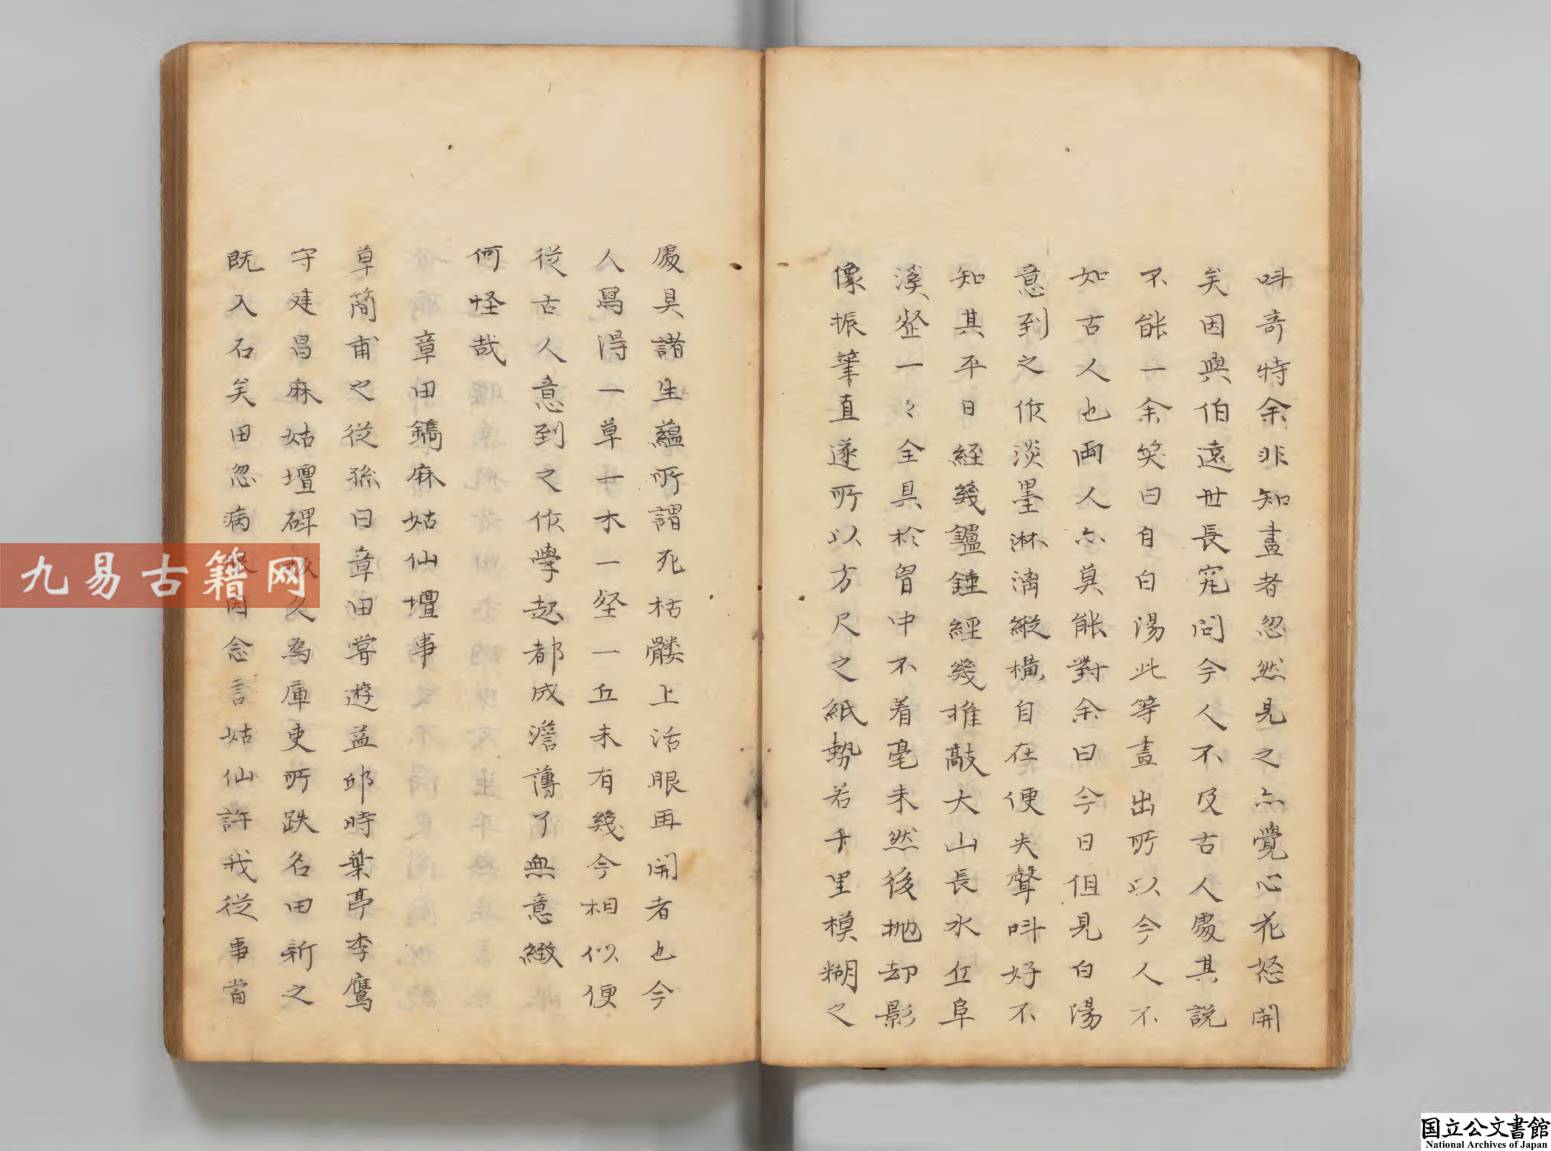 呌奇特余非知畫者忽然見之亦覺心花怒開
矣因與伯遠世長究问今人不及古人處其説
不能一余笑曰自白湯此等畫出所以今人不
如古人也両人亦莫能對余曰今日但見白湯
意到之作淡墨淋漓縱橫自在便失聲呌好不
知其平日経幾鑪錘經幾推敲大山長水丘阜
溪壑一々全具於胷中不着毫未然後抛却影
像振筆直遂所以方尺之紙勢若千里模糊之
處具諸生蘊所謂死枯髅上活眼再開者也今
人爲得一草一木一壑一丘未有幾今相似便
從古人意到之作學起都成澹薄了無意緻
何怪哉
章田鐫麻姑仙壇事
草簡甫之從孫曰章田甞遊益邱時葉亭李鷹
守建昌麻姑壇碑久為庫吏所跌名田新之
既入石矣田忽病因念言姑仙許我從事當
九易古籍网
国立公文書館
National Archives of Japan